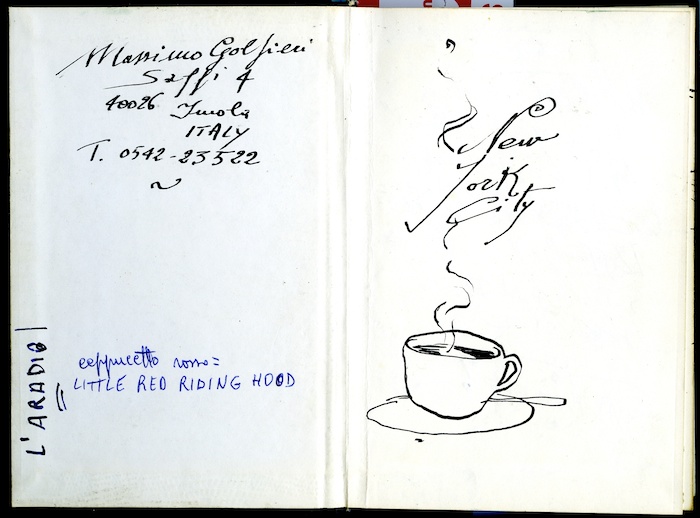 Massimo Golfieri
Saffi 4
40026 Imola
ITALY
T. 0542-23522
cappuccetto rosso =
LITTLE RED RIDING HOOD
L'ARADIO
New
York
City